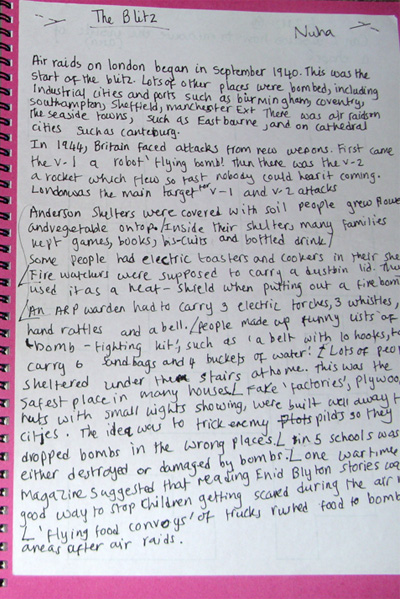 The Blitz
Nuha
Air raids on london began in September 1940. This was the
start of the blitz. Lots of other places were bombed, including
Industrial cities and ports such as birmingham, coventry,
southampton, Sheffield, manchester Ext There was air raids on
the seaside towns, such as Eastbourne, and on cathedral
cities such as canterburg.
In 1944, Britain faced attacks from new wepons. First came
the V-1 a robot 'flying bomb'. Thun there was the V-2
a rocket which flew so fast nobody could hear it coming.
London was the main target for V-1 and V-2 attacks
Anderson shelters were covered with soil people grew flowe
and vegetable on top. Inside their shelters many families
kept games, books, biscuits and bottled drink
Some people had electric toasters and cookers in their she
Fire watchers were supposed to carry a dustbin lid. The
used it as a heat-shield when putting out a fire bom
An ARP warden had to carry 3 electric torches, 3 whistles,
hand rattles and a bell. people made up funny lists of
'bomb-fighting kit', such as 'a belt with 10 hooks, to
carry 6 sandbags and 4 buckets of water'. Lots of peop
sheltered under the stairs at home. this was the
safest place in many houses. Fake 'factories', plywoo
huts with small lights showing, were built well away
cities. The idea was to trick enemy pilots so they
dropped bombs in the wrong places. 1 in 5 schools was
either destroyed or damaged by bombs. one war time
Magazine suggested that reading Enid Blyton stories
good way to stop children getting scared during the air
'flying food convoys' of trucks rushed food to bomb
areas after air raids.